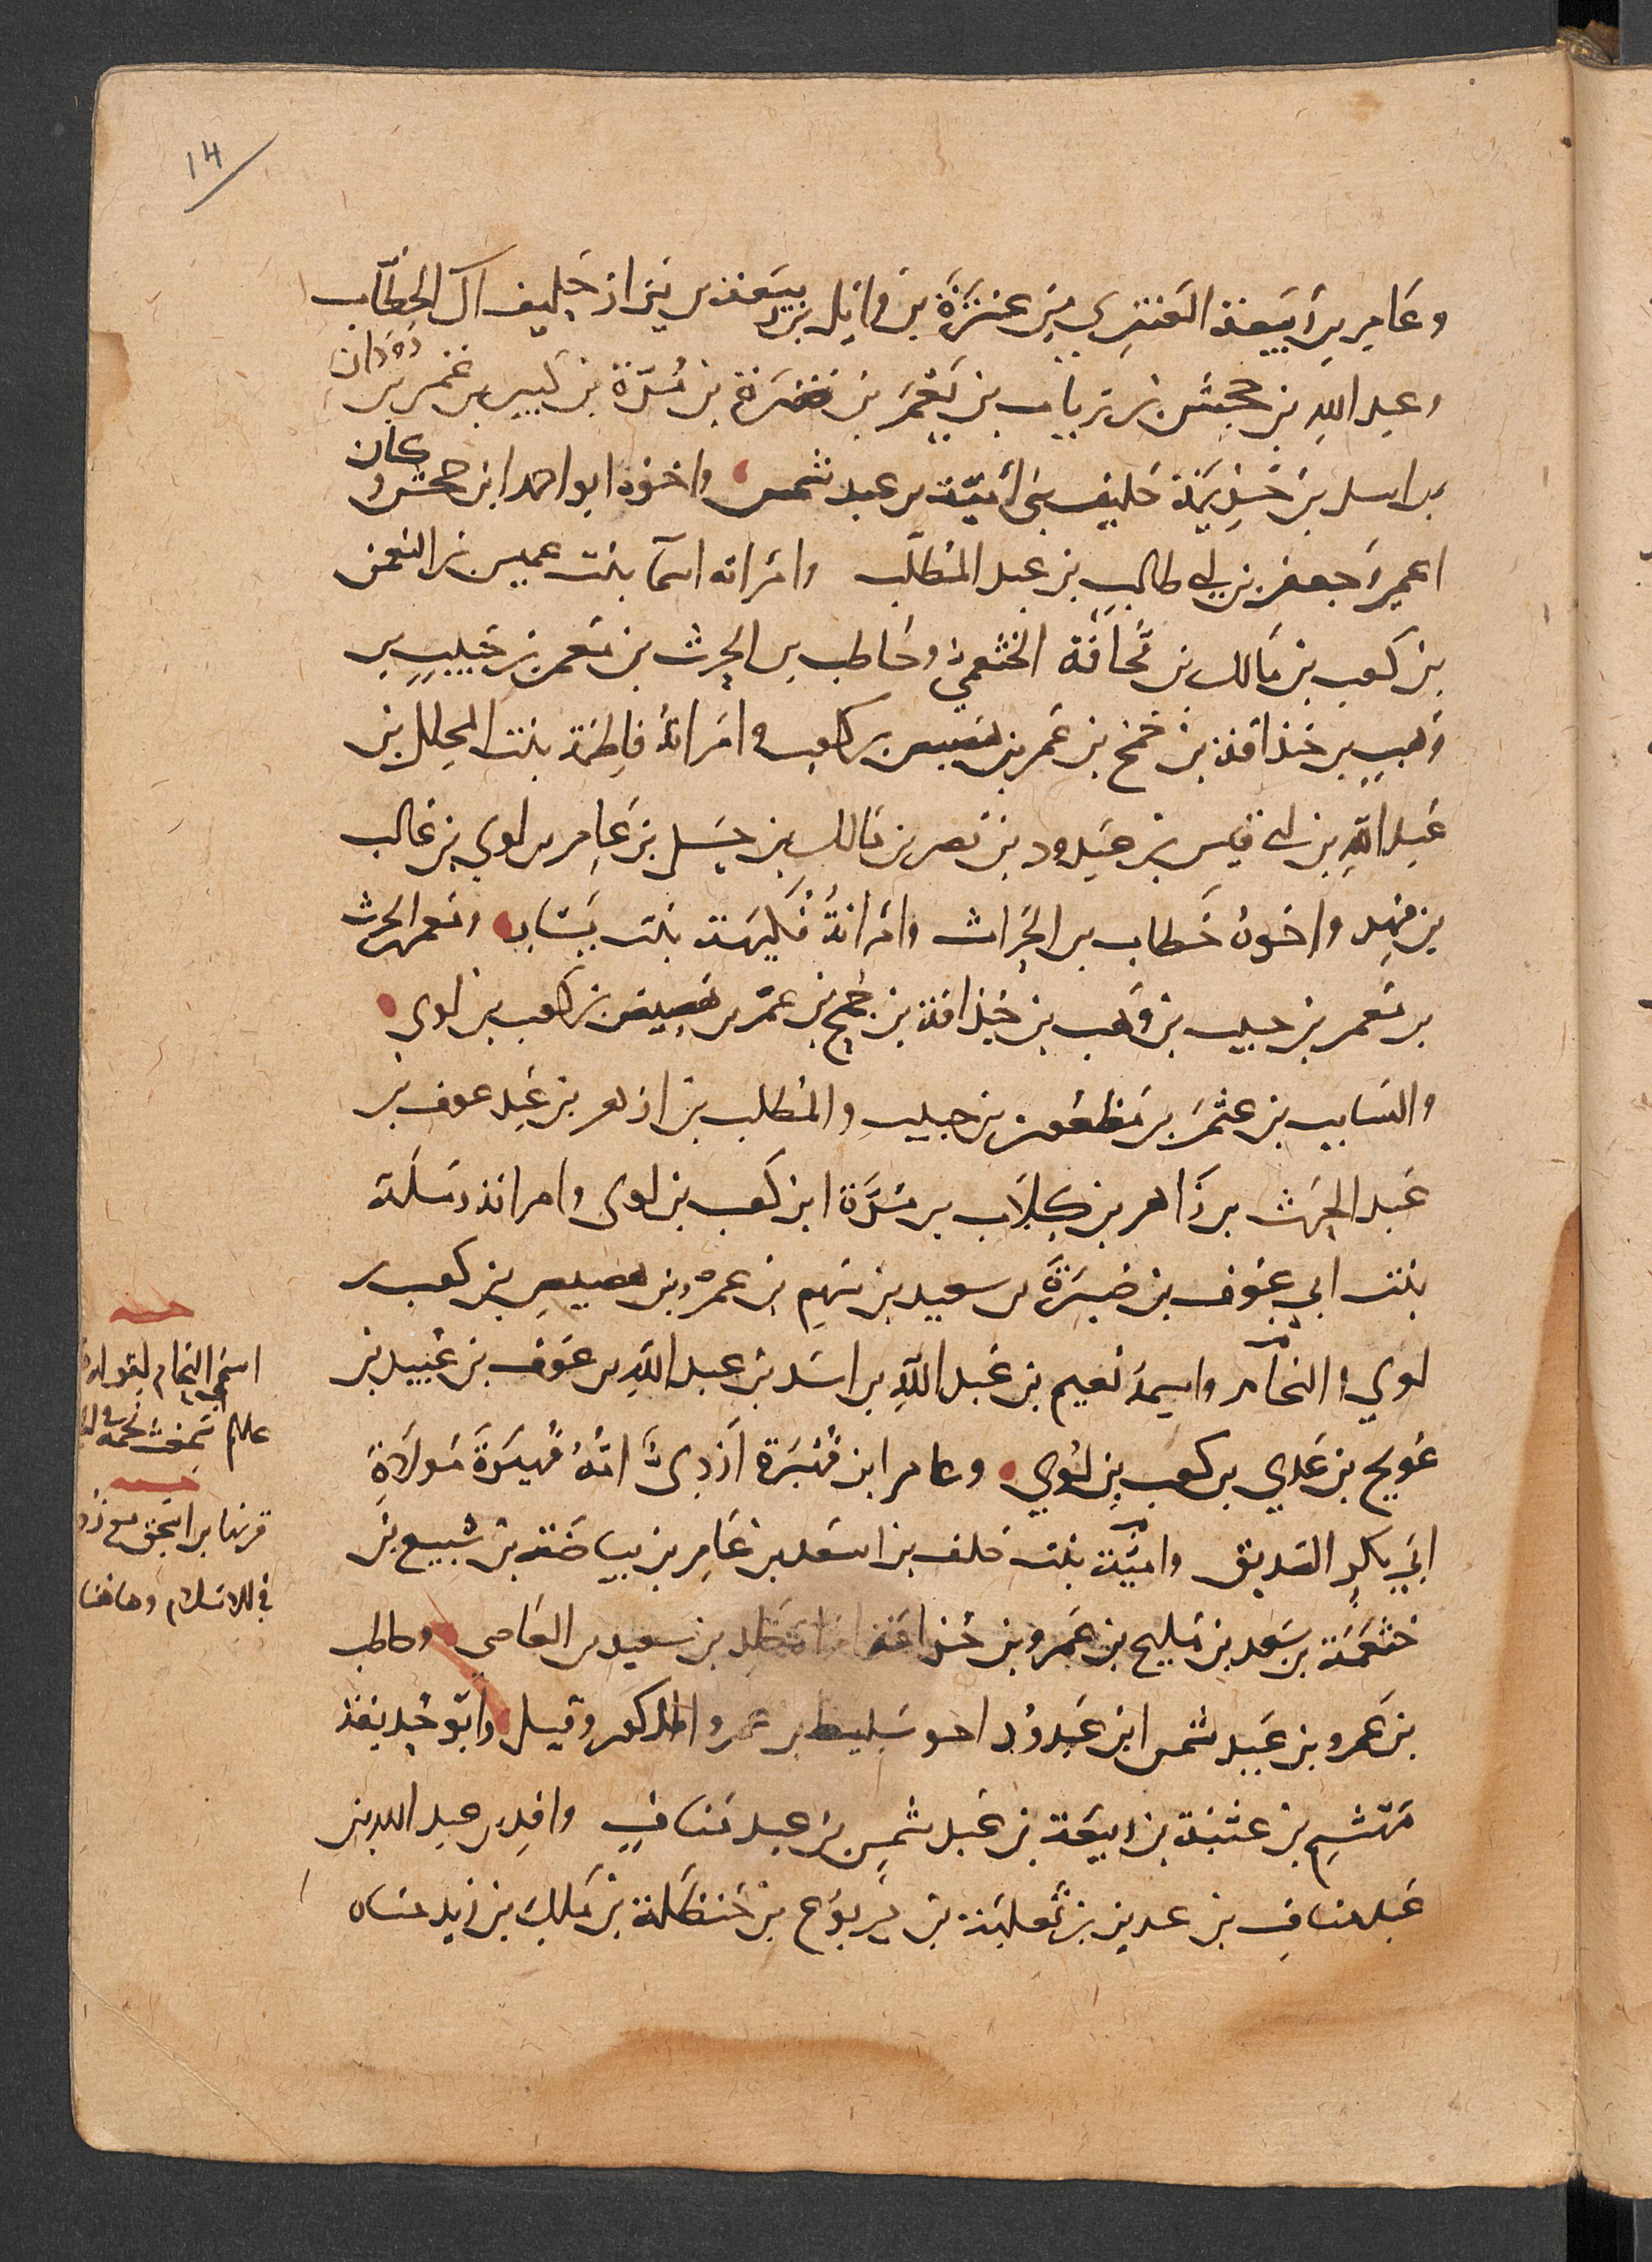 14
وعَامِر بن رَبيعَة العَنزِي مِن عَنزَة بن وَايِل بن ربيعَة بن نزار حَلِيف ال الخَطّاب
وعبد اللهِ بن جحش بن رياب بن يَعْمَر بن صَبرة بن مُرّة بن كبير بن غنم بن دُودَان
بن اسد بن خُزيمَة حَليف بني اُميّة بن عبد شمس واخوه ابو احمد ابن جحش وكان
اعمى وَجعفر بن ابي طالب بن عبد المطّلب وامراته اسمآ بنت عميس بن النعمن
بن كعب بن مالك بن قُحافَة الخثعمي وحَاطب بن الحرث بن مَعمر بن حَبيب بن
وَهب بن حُذافة بن جُمح بن عَمر بن هصيص بن كعب وامَراتُه فاطِمَة بنت المحلل بن
عَبد اللهِ بن ابي قيس بن عَبدود بن نصر بن مَالك بن حِسل بن عَامِر بن لوي بن غالب
بن فهر واخوهُ خَطاب بن الحَراث وامراتُهُ فُكَيهة بنت يَسَار ومَعمر بن الحرث
بن مَعمر بن حبيب بن وَهب بن حُذافة بن جُمح بن عَمْر بن هصيص بن كعب بن لوى
والسَايب بن عثمَن بن مَظعُون بن حبيب والمُطَّلب بن ازهر بن عَبد عوف بن
عَبد الحَرث بن زَاهر بن كِلاَب بن مُرَّة ابن كَعب بن لوى وامراته رملة
بنت ابي عَوف بن صُبَيرَةَ بن سعيد بن سَهم بن عمرو بن هصيص بن كعب بن
لوي والنحَّام واسمهُ نُعيم بن عَبد اللهِ بن اسَد بن عبد اللهِ بن عَوف بن عُبيد بن
عُويج بن عَدي بن كعب بن لوي وعامر ابن فُهَيرة اَزدِىٌّ اُمُّهُ فُهيرَةُ مَولاَةِ
ابي بكرٍ الصديق وامَيّنَة بنت خلف بن اسَعد بن عَامِر بن بيَاضَة بن سُبيع بن
خثعَمَة بن سَعد بن مُليح بن عَمرو بن خُزاعَة امراة خَالِد بن سعيد بن العَاصي وحاطب
بن عَمرو بن عَبد شمس ابن عَبدوُد اخو سَليط بن عمرو المذكور قيل وابَو حُذيفة
مِهَشِم بن عُتبَة بن رَبيعَة بن عَبد شَمس بن عبد مَنافٍ ووَاقِد بن عبد الله بن
عَبد منافِ بن عرين بن ثعلبَة بن يَربوُع بن حَنظَلة بن مَالِك بن زيد مناه
اسمى النحام لقوله
عليه سَمعتُ نَحمَهُ في
قرنها بن اسحق مع
في الاسلام